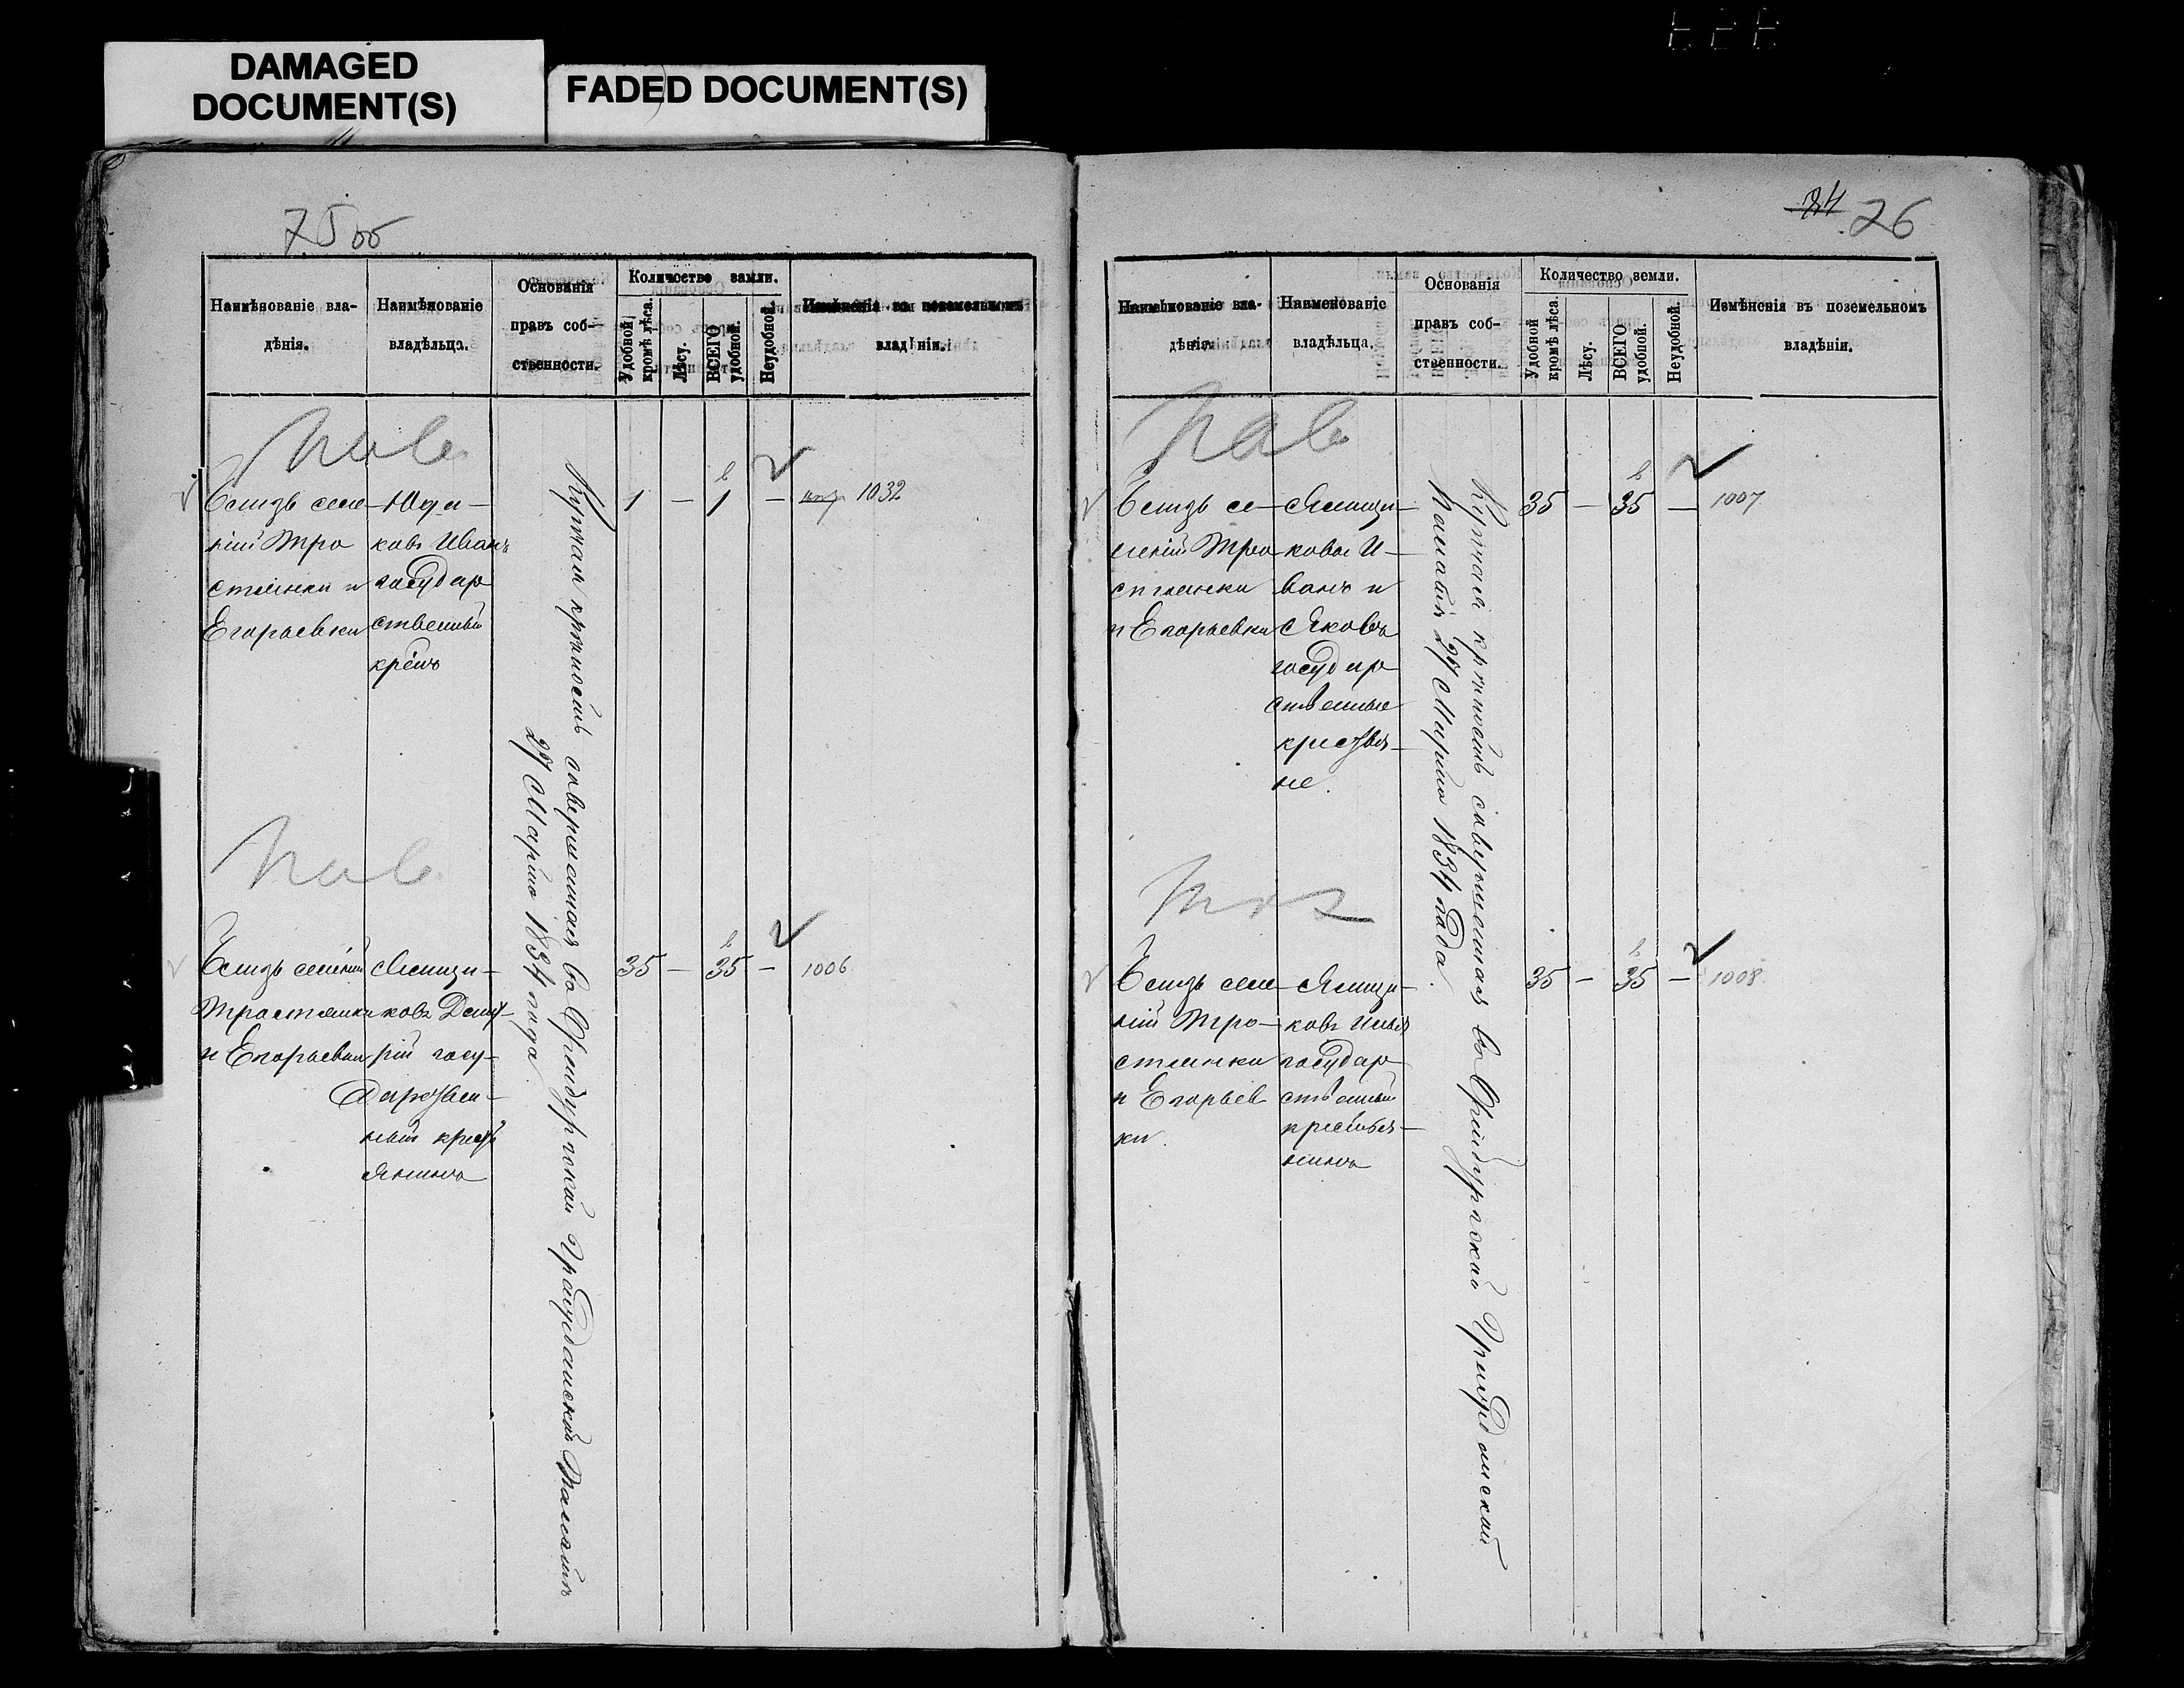 DAMAGED
DOCUMENT(S)
FADED DOCUMENT(S)
75 об
Наимѣнованіе вла-
дѣнія.
Наимѣнованіе
владѣльца.
Основанія
правъ соб-
ственности.
Количество земли.
Удобной
кромѣ лѣса.
Лѣсу.
ВСЕГО
удобной.
Неудобной.
Измѣненія въ поземельномъ
владѣніи.
Близь селе-
ній Тро
стянки и
Егорьевки
Юди-
ковъ Иванъ
государ
ственный
крѣнъ
Купчая крѣпость совершенная въ Оренбургской Гражданской Палатѣ
27 Марта 1834 года
1 — 1 — 1032
Близь селеній
Тростянки
и Егорьевки
Ямщи-
ковъ Дмит-
рій госу-
дарствен-
ный крест
янинъ
35 — 35 — 1006
84 76
Наимѣнованіе вла-
дѣнія.
Наименованіе
владѣльца.
Основанія
правъ соб-
ственности.
Количество земли.
Удобной
кромѣ лѣса.
Лѣсу.
ВСЕГО
удобной.
Неудобной.
Измѣненія въ поземельномъ
владѣніи.
Близь се-
леній Тро
стянки
и Егорьевки
Ямщи-
ковы И-
ванъ и
Яковъ
государ
ственные
крестья-
не.
Купчая крѣпость совершенная въ Оренбургской Гражданской
Палатѣ 27 Марта 1834 года.
35 — 35 — 1007
Близь селе-
ній Тро-
стянки
и Егорьев
ки.
Ямщи-
ковъ Илья
государ-
ственный
крестья-
нинъ
35 — 35 — 1008